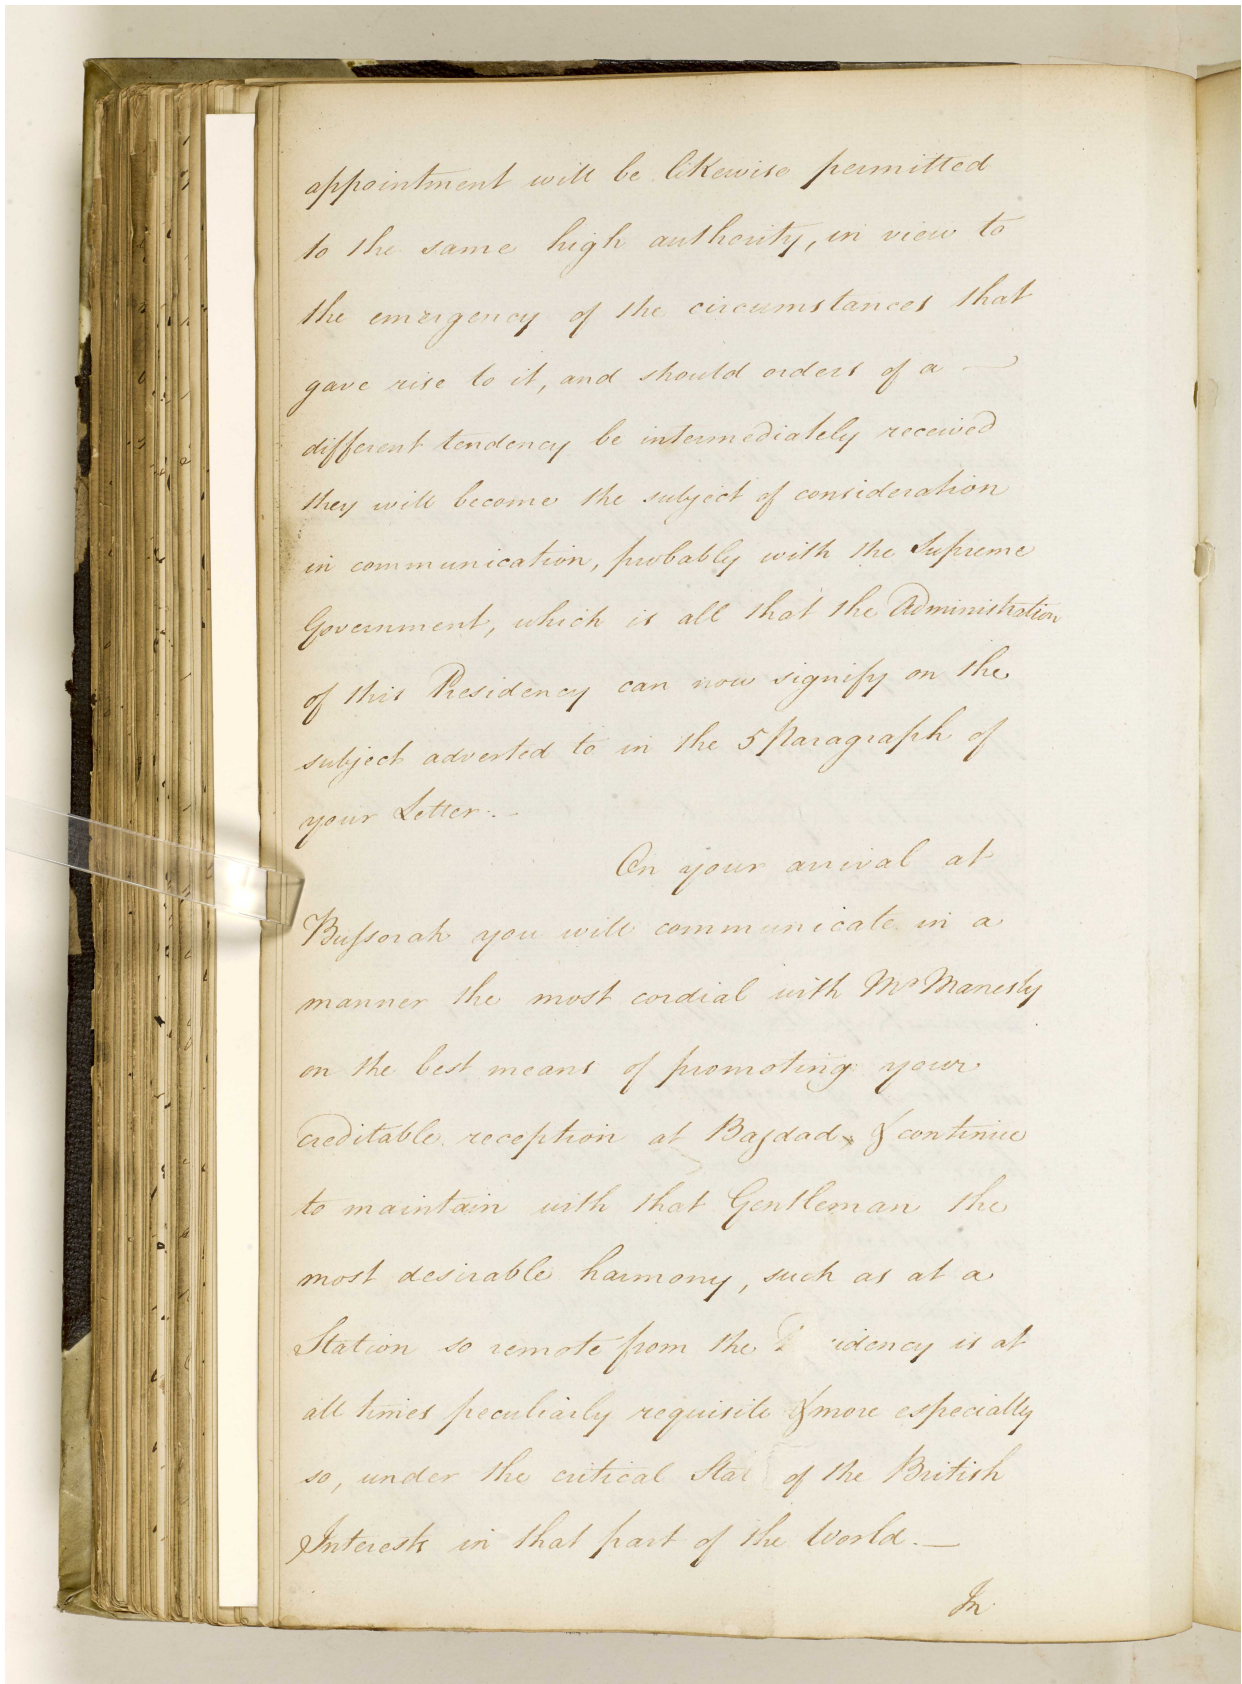 appointment will be likewise permitted
to the same high authority, in view to
the emergency of the circumstances that
gave rise to it, and should orders of a —
different tendency be intermediately received
they will become the subject of consideration
in communication, probably with the Supreme
Government, which is all that the Administration
of this Presidency can now signify on the
subject adverted to in the 5 Paragraph of
your Letter. —
On your arrival at
Bussorah you will communicate in a
manner the most cordial with Mr Manesty
on the best means of promoting your
creditable reception at Bagdad, & continue
to maintain with that Gentleman the
most desirable harmony, such as at a
Station so remote from the idency is at
all times peculiarly requisite & more especially
so, under the critical Stat of the British
Interests in that part of the World. —
In